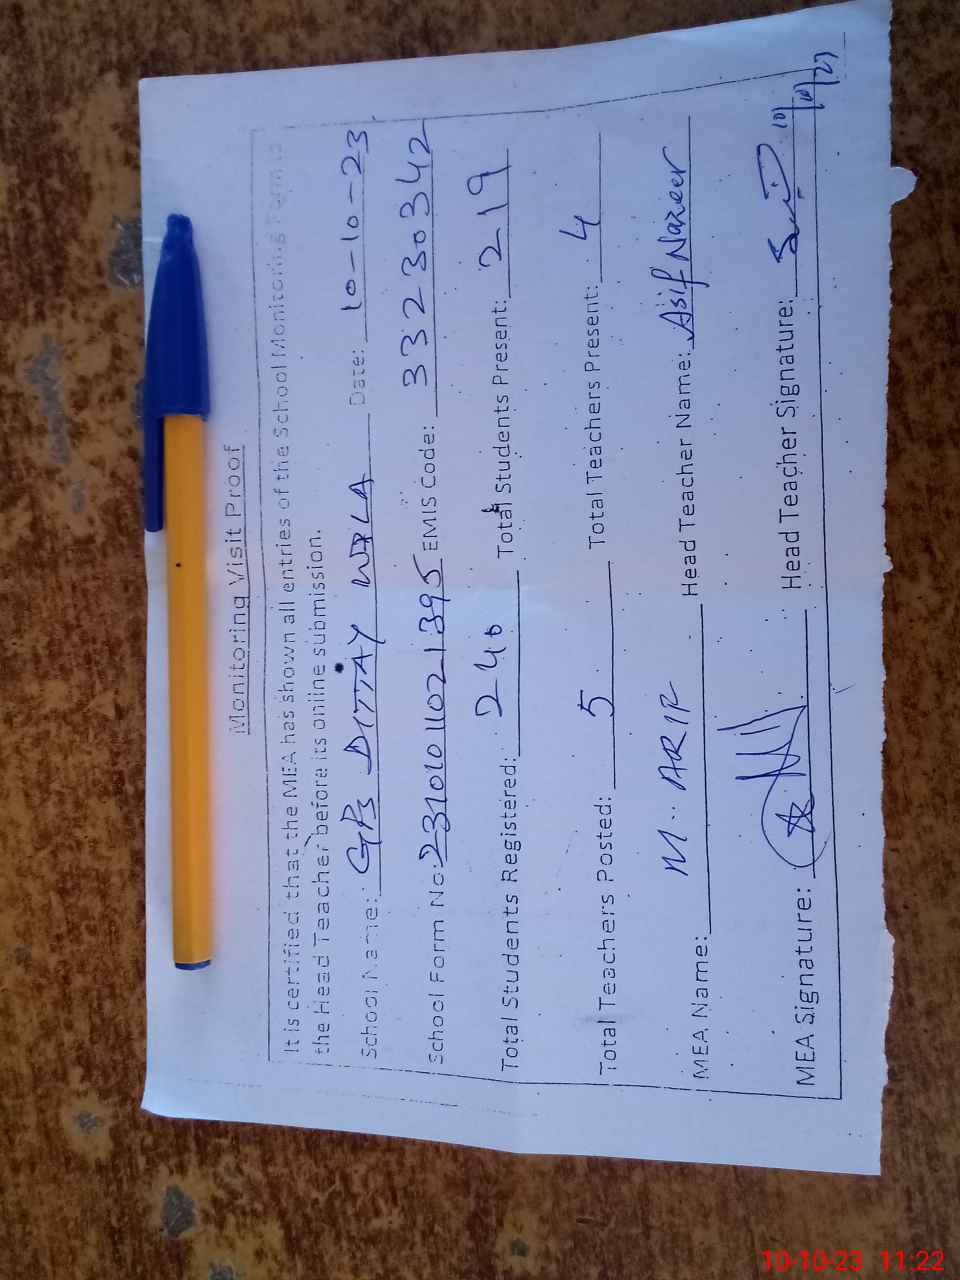 Monitoring Visit Proof
It is certified that the MEA has shown all entries of the School Monitoring Form to
the Head Teacher before its online submission.
School Name: GPS DITTAY WALA Date: 10-10-23
School Form No: 23101011021395 EMIS Code: 33230342
Total Students Registered: 240 Total Students Present: 219
Total Teachers Posted: 5 Total Teachers Present: 4
MEA Name: M. ARIF Head Teacher Name: Asif Nazeer
MEA Signature: Head Teacher Signature: 10/10/23
10-10-23 11:22